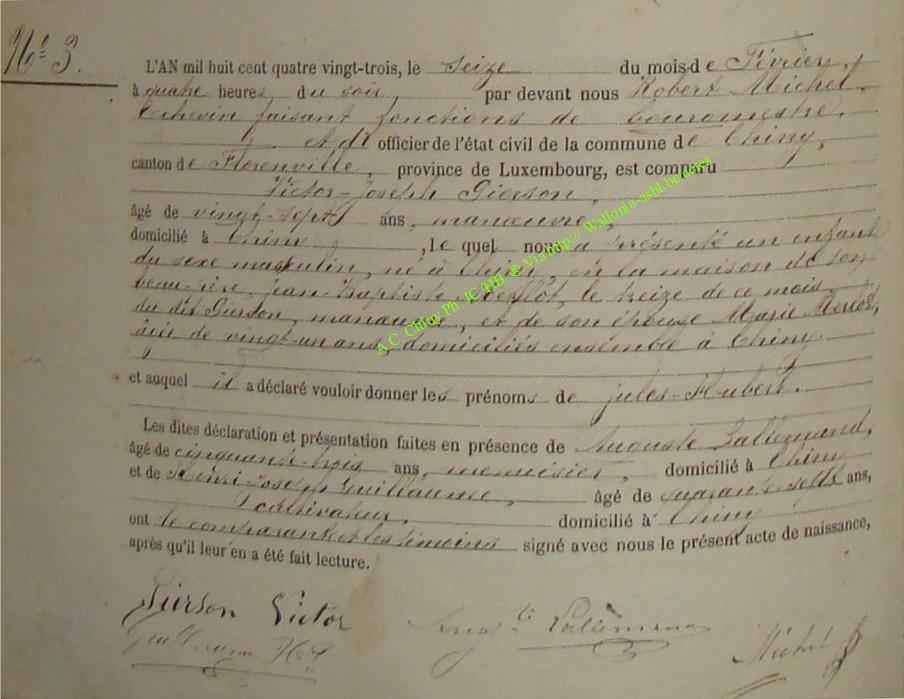 No 3.
L'AN mil huit cent quatre vingt-trois, le seize du mois de Février,
à quatre heures du soir, par devant nous Robert Michel,
Echevin faisant fonctions de bourgmestre,
et dt officier de l'état civil de la commune de Chiny,
canton de Florenville, province de Luxembourg, est comparu
Victor-Joseph Gierson,
âgé de vingt-sept ans, manœuvre,
domicilié à Chiny, le quel nous a présenté un enfant
du sexe masculin, né à Chiny, en la maison de son
beau-père Jean-Baptiste le treize de ce mois,
du dit Gierson, manœuvre, et de son épouse Marie
âgée de vingt-un ans, domiciliés ensemble à Chiny
et auquel il a déclaré vouloir donner les prénoms de Jules-Hubert.
Les dites déclaration et présentation faites en présence de Auguste Lallemand,
âgé de cinquante-trois ans, menuisier, domicilié à Chiny
et de Henri-Joseph Guillaume, âgé de quarante-sept ans,
cultivateur, domicilié à Chiny
ont le comparant et les témoins signé avec nous le présent acte de naissance,
après qu'il leur en a été fait lecture.
Gierson Victor
Lallemand
Guillaume H J
Michel
A.C. Chiny Ph JC/HB ® Via http// Wallonia-asbl.be/actes